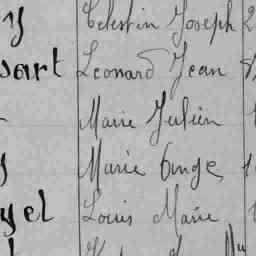 y Celestin Joseph 2
sart Leonard Jean
Marie Julien
Marie Ange
yel Louis Marie